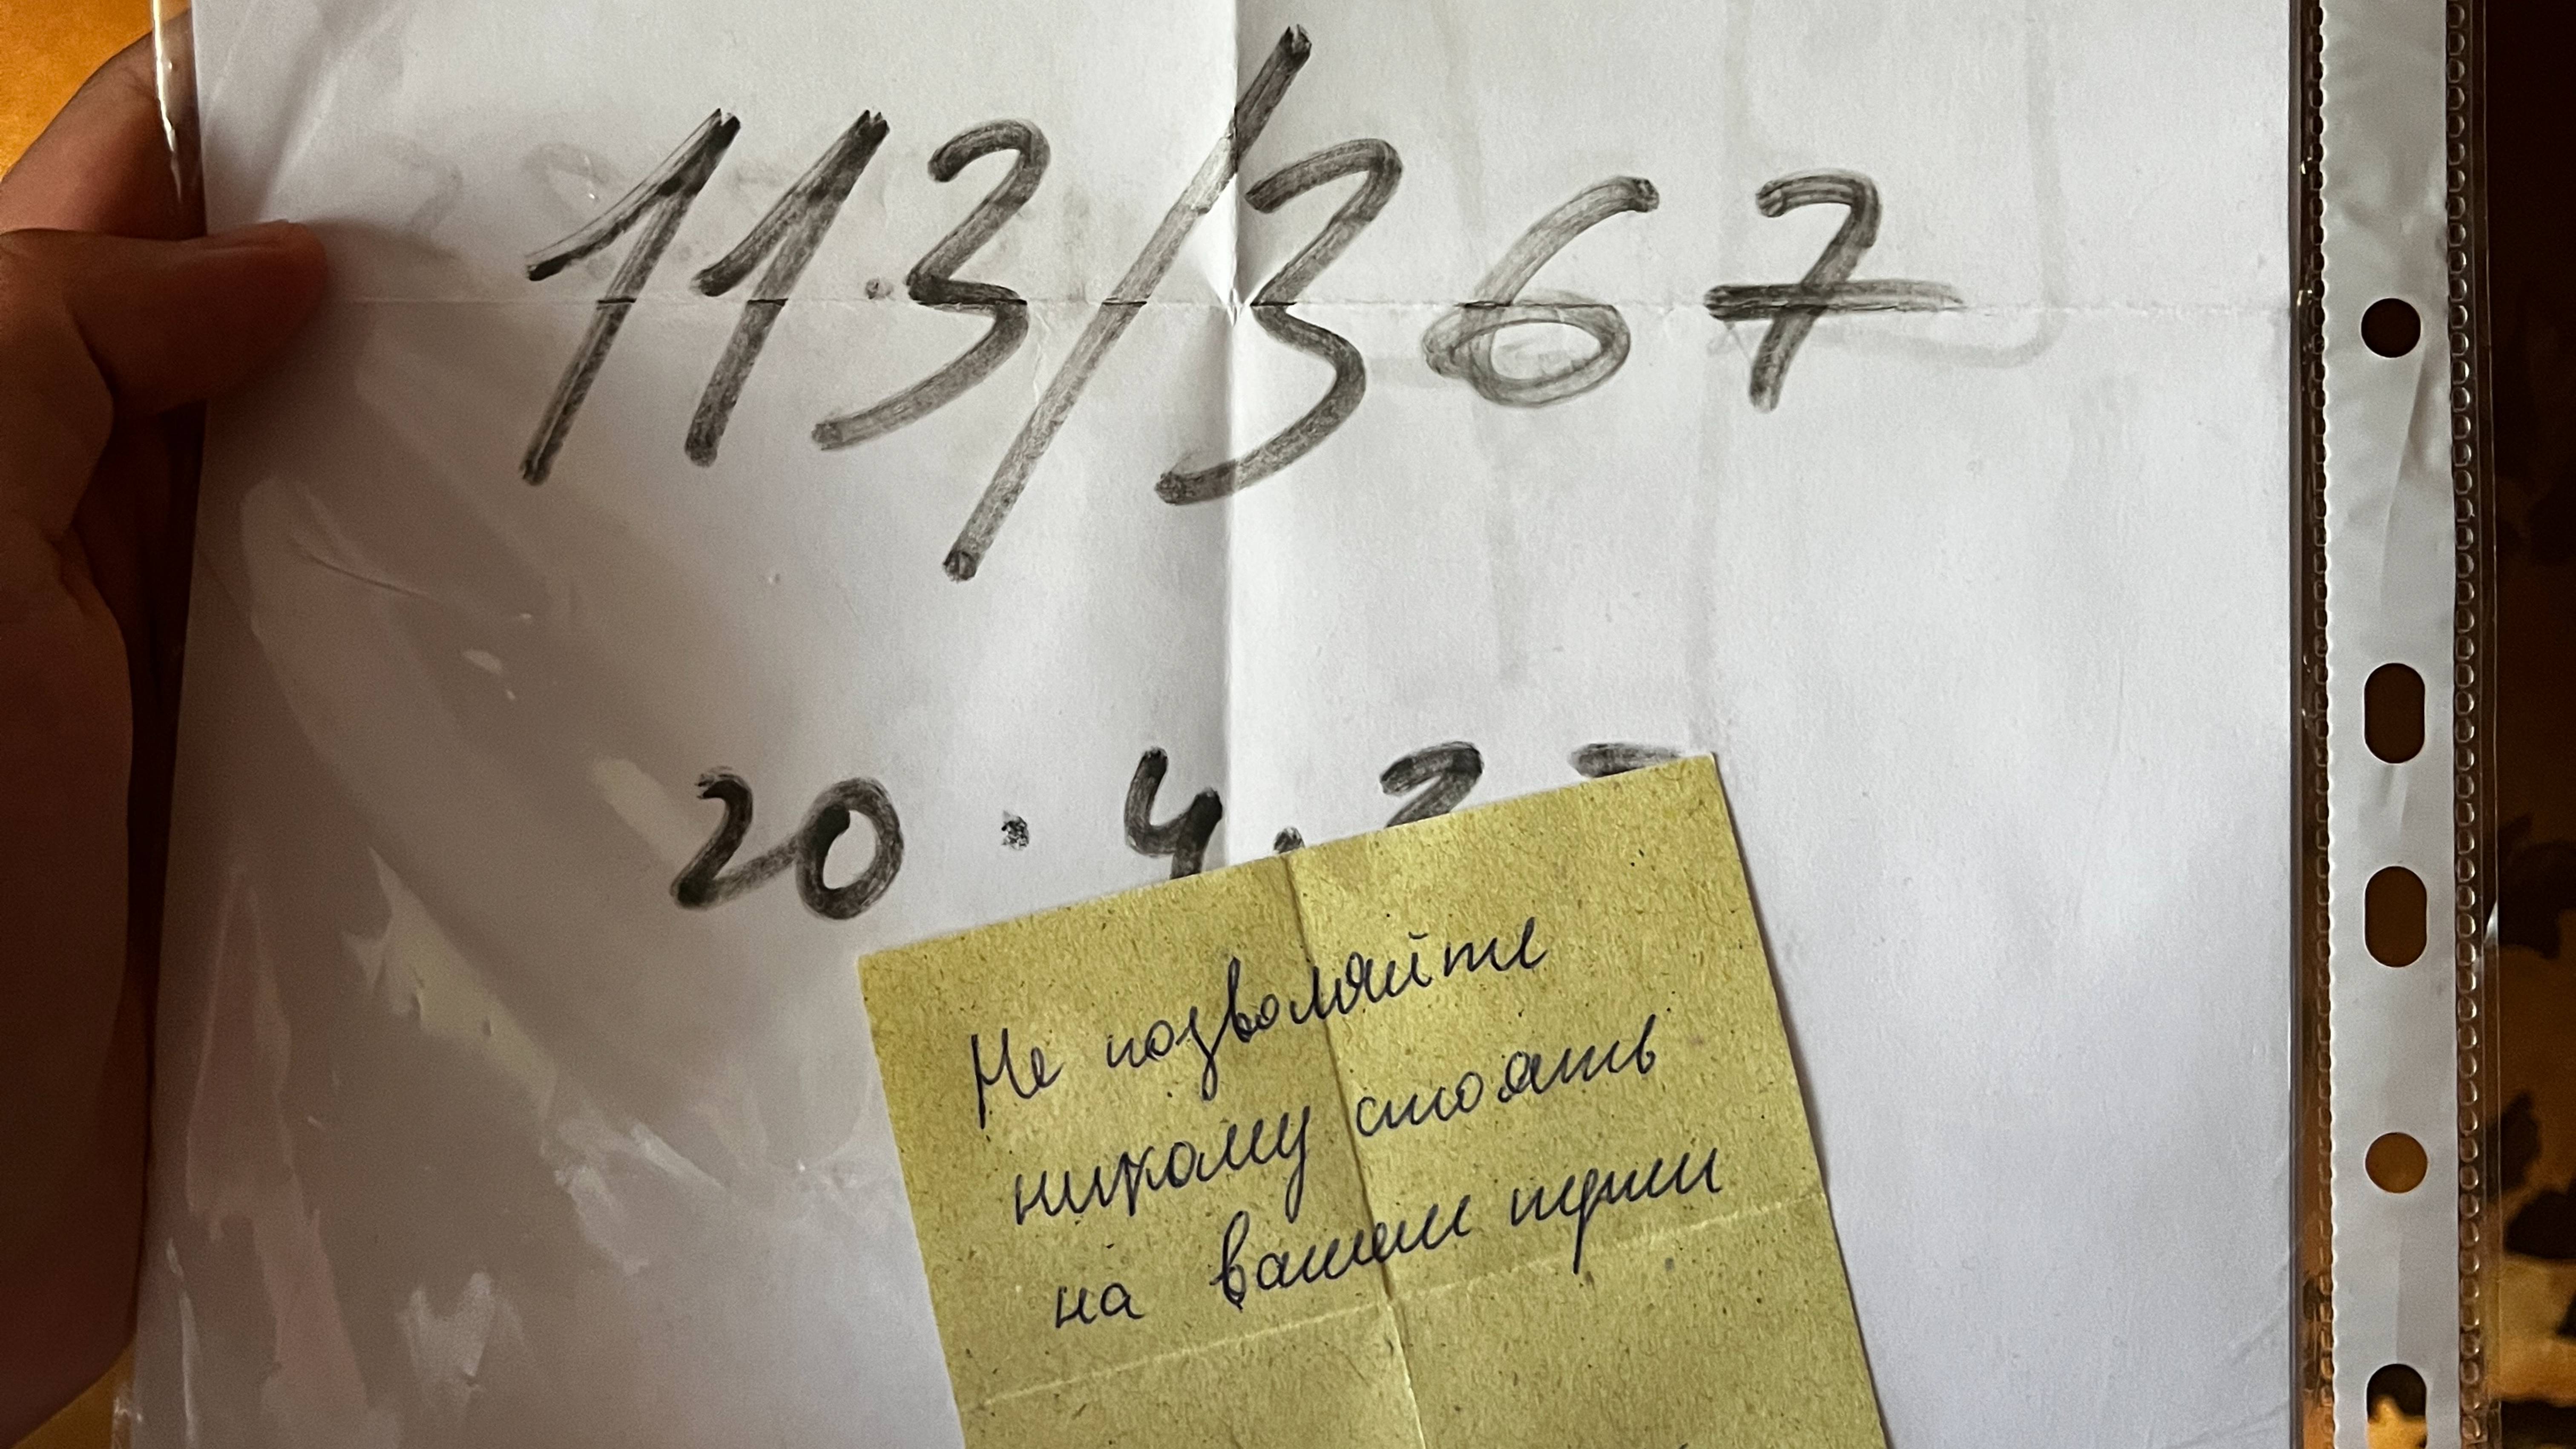 113/367
20.4.2
Не позволяйте
никому стоять
на вашем пути